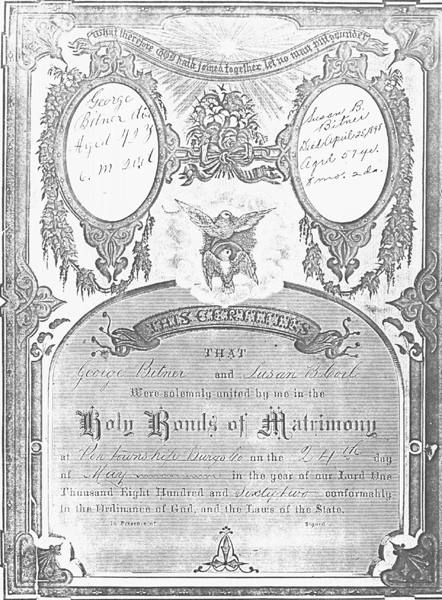 What therefore GOD hath joined together, let no man put asunder
George
Bitner
Aged 72 y
6 m 21 d
Susan B.
Bitner
Died April 25, 1898
Aged 57 yr.
mos. da.
THIS CERTIFIES
THAT
George Bitner and Susan B.
Were solemnly united by me in the
Holy Bonds of Matrimony
at Penn township on the 24th day
of May in the year of our Lord One
Thousand Eight Hundred and Sixty two conformably
to the Ordinance of God, and the Laws of the State.
In Presence of Signed